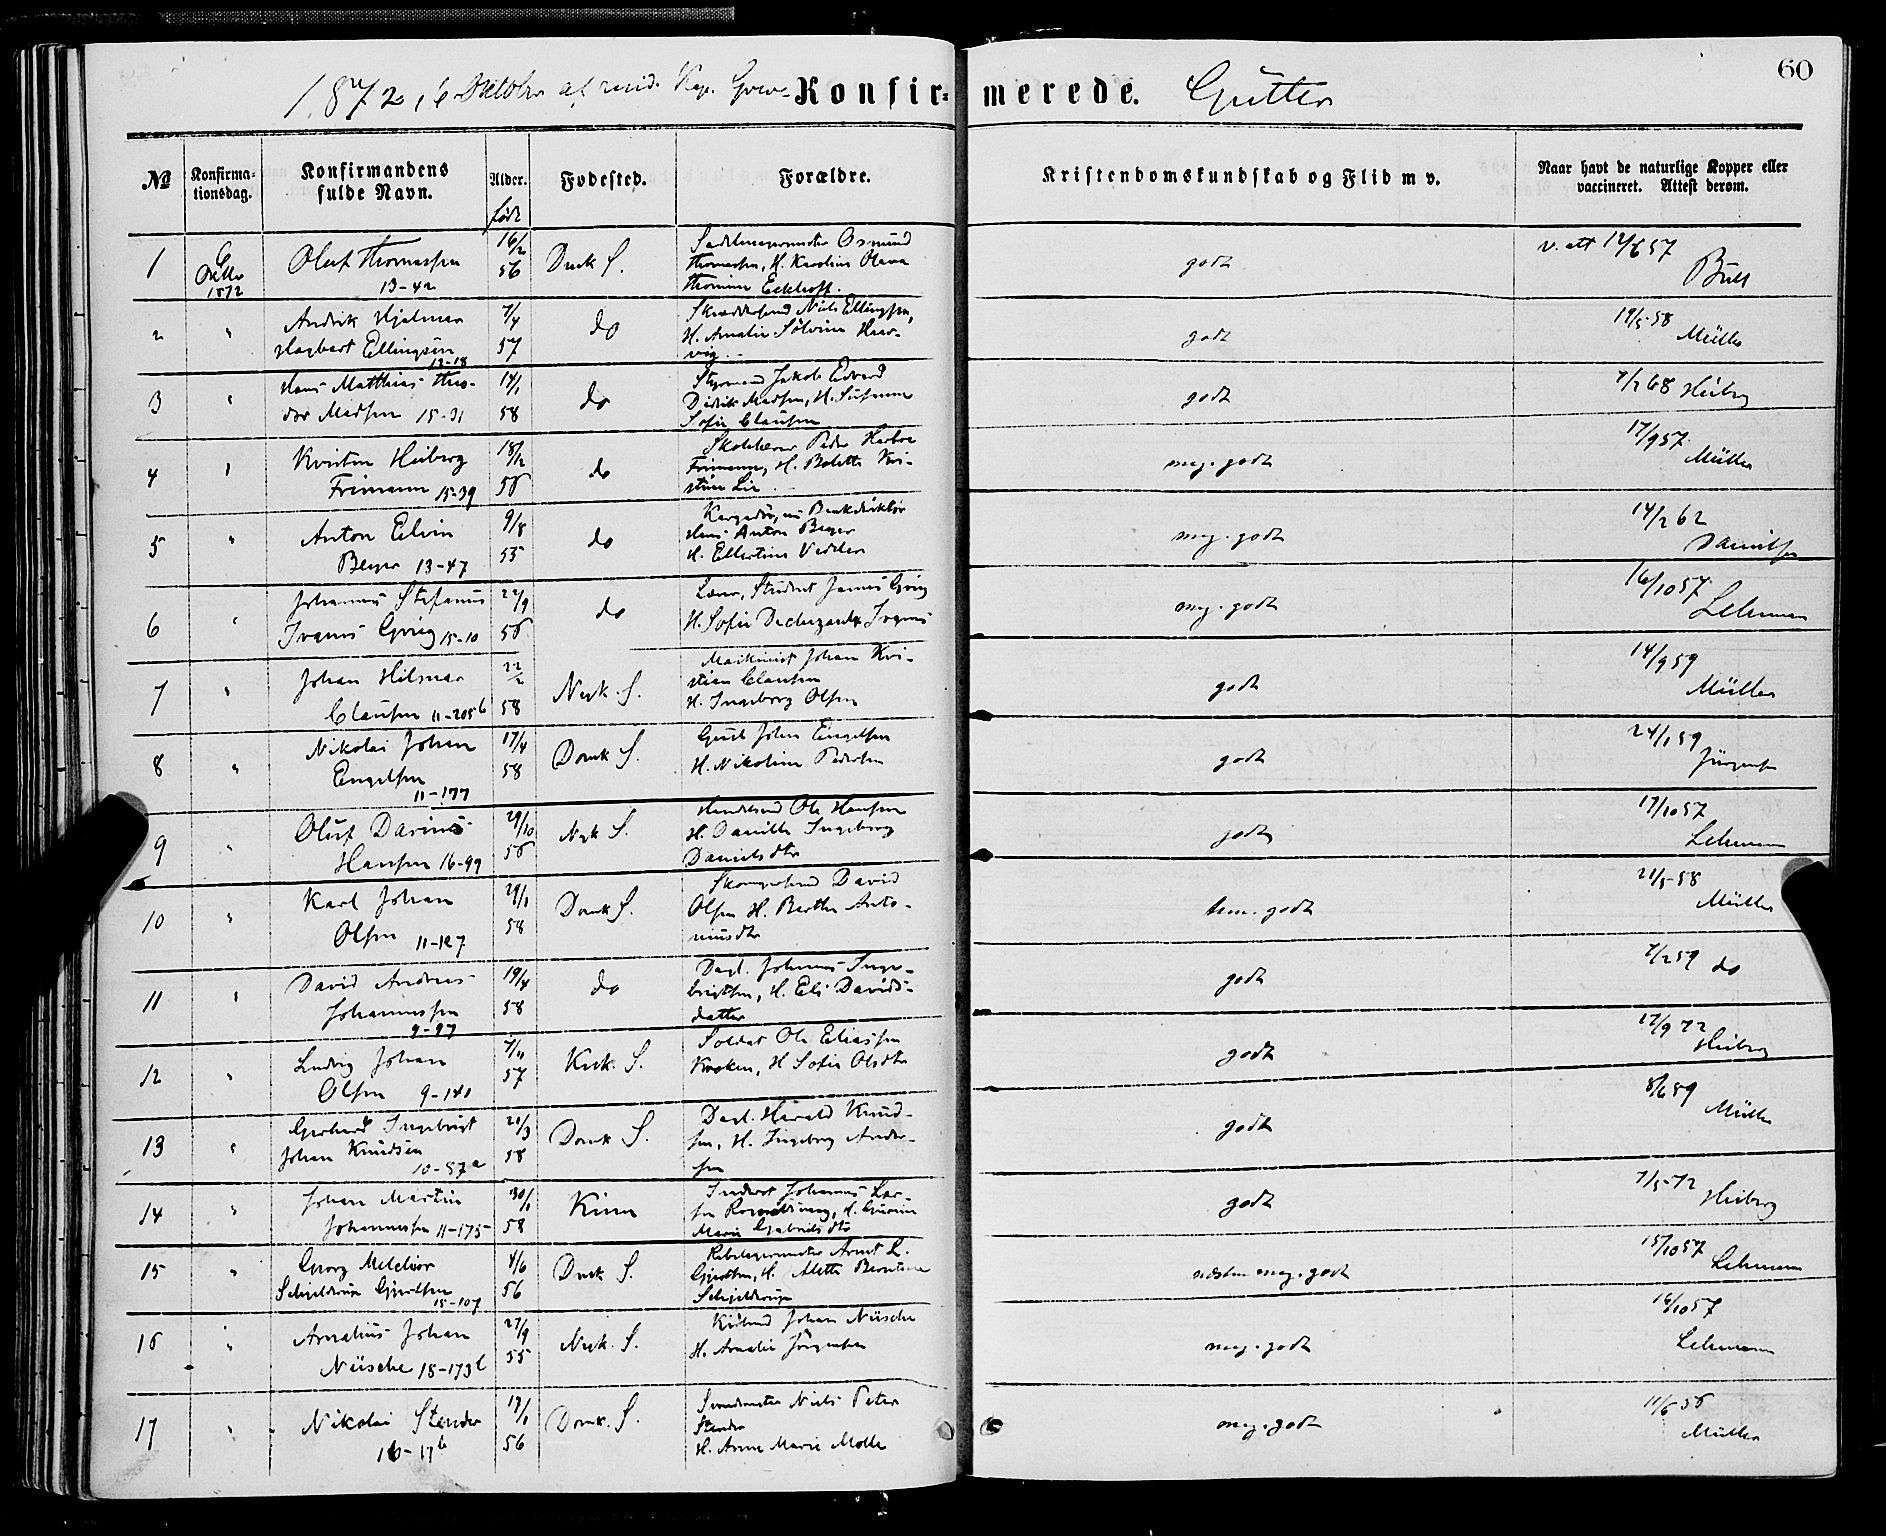 60
1872, 6 Oktober af resid. Kap.
Konfirmerede. Gutter
№
Konfirma-
tionsdag.
Konfirmandens
fulde Navn.
Alder.
født
Fødested.
Forældre.
Kristendomskundskab og Flid m v.
Naar havt de naturlige Kopper eller
vaccineret. Attest derom.
1
6
Oktbr
1872
Oluf Thomassen
13-42
16/2
56
Domk S.
Sadelmagermester Osmund
Thomassen, H. Karoline Olava
Eckhoff.
godt
v. att 12/6 57
Bull
2
"
Andrik Hjalmar
Hagbart Ellingsen
13-18
7/4
57
do
Niels Ellingsen,
H. Amalie Sølvine Haar-
vig
godt
19/5 58
Müller
3
"
Hans Matthias Theo-
dor Madsen 15-31
14/1
58
do
Styrmand Jakob Edvard
Didrik Madsen, H. Susanne
Sofie Clausen
godt
7/2 68 Heiberg
4
"
Kristen Heiberg
Frimann 15-39
18/12
56
do
Skolelærer Peder Harboe
Frimann, H. Bolette Kri-
stine Lie
meg. godt
17/9 57
Müller
5
"
Anton Elvin
Beyer 13-47
9/8
55
do
Bankdirektør
Hans Anton Beyer
H. Ellertine Vedeler
meg. godt
14/2 62
Danielsen
6
"
Johannes Stefanus
Ivanus Grieg 15-10
22/9
56
do
Lærer, Student James Grieg
H. Sofie
meg. godt
16/10 57
Lehmann
7
"
Johan Hilmar
Clausen 11-205b
22/2
58
Nyk. S.
Maskinist Johan Kri-
stian Clausen
H. Ingeborg Olsen
godt
14/9 59
Müller
8
"
Nikolai Johan
Engelsen
11-177
17/4
58
Domk S.
John Engelsen
H. Nikoline Pedersen
godt
24/1 59
Jürgensen
9
"
Oluf Darius
Hansen 16-99
29/10
56
Nyk S.
Handelsmd Ole Hansen
H. Danille Ingeborg
Danielsdtr
godt
17/10 57
Lehmann
10
"
Karl Johan
Olsen 11-127
29/1
58
Domk S.
Skomagersvend David
Olsen H. Berthe Anto-
niusdtr
tem. godt
21/5 58
Müller
11
"
David Andreas
Johannessen
9-97
19/4
58
do
Dagl. Johannes Inge-
brigtsen, H. Eli Davids-
datter
godt
7/2 59 do
12
"
Ludvig Johan
Olsen 9-141
7/11
57
Krk. S.
Soldat Ole Eliassen
Kroken, H Sofie Olsdtr
godt
17/9 72
Heiberg
13
"
Gerhard Ingebrigt
Johan Knudsen
10-57a
20/3
58
Domk S.
Dagl. Harald Knud-
sen, H. Ingeborg Ander-
sen
godt
8/6 59
Müller
14
"
Johan Martin
Johannessen 11-175
30/1
58
Kinn
Inderst Johannes Lar-
sen
Marie Gabrielsdtr
godt
7/5 72
Heiberg
15
"
Georg Melchior
Schjelderup Gjertsen
15-107
4/6
56
Domk S.
Rebslagermester Arent L.
Gjertsen, H. Alette Berntine
Schjelderup
næsten meg. godt
15/10 57
Lehmann
16
"
Amalius Johan
Nüsche 18-173b
27/9
55
Nyk. S.
Johan Nüsche
H. Amalie Jörgensen
meg. godt
16/10 57
Lehmann
17
"
Nikolai Stender
16-17b
19/1
56
Domk. S.
Niels Peter
Stender
H. Anne Marie Molle
meg. godt
11/6 56
Müller